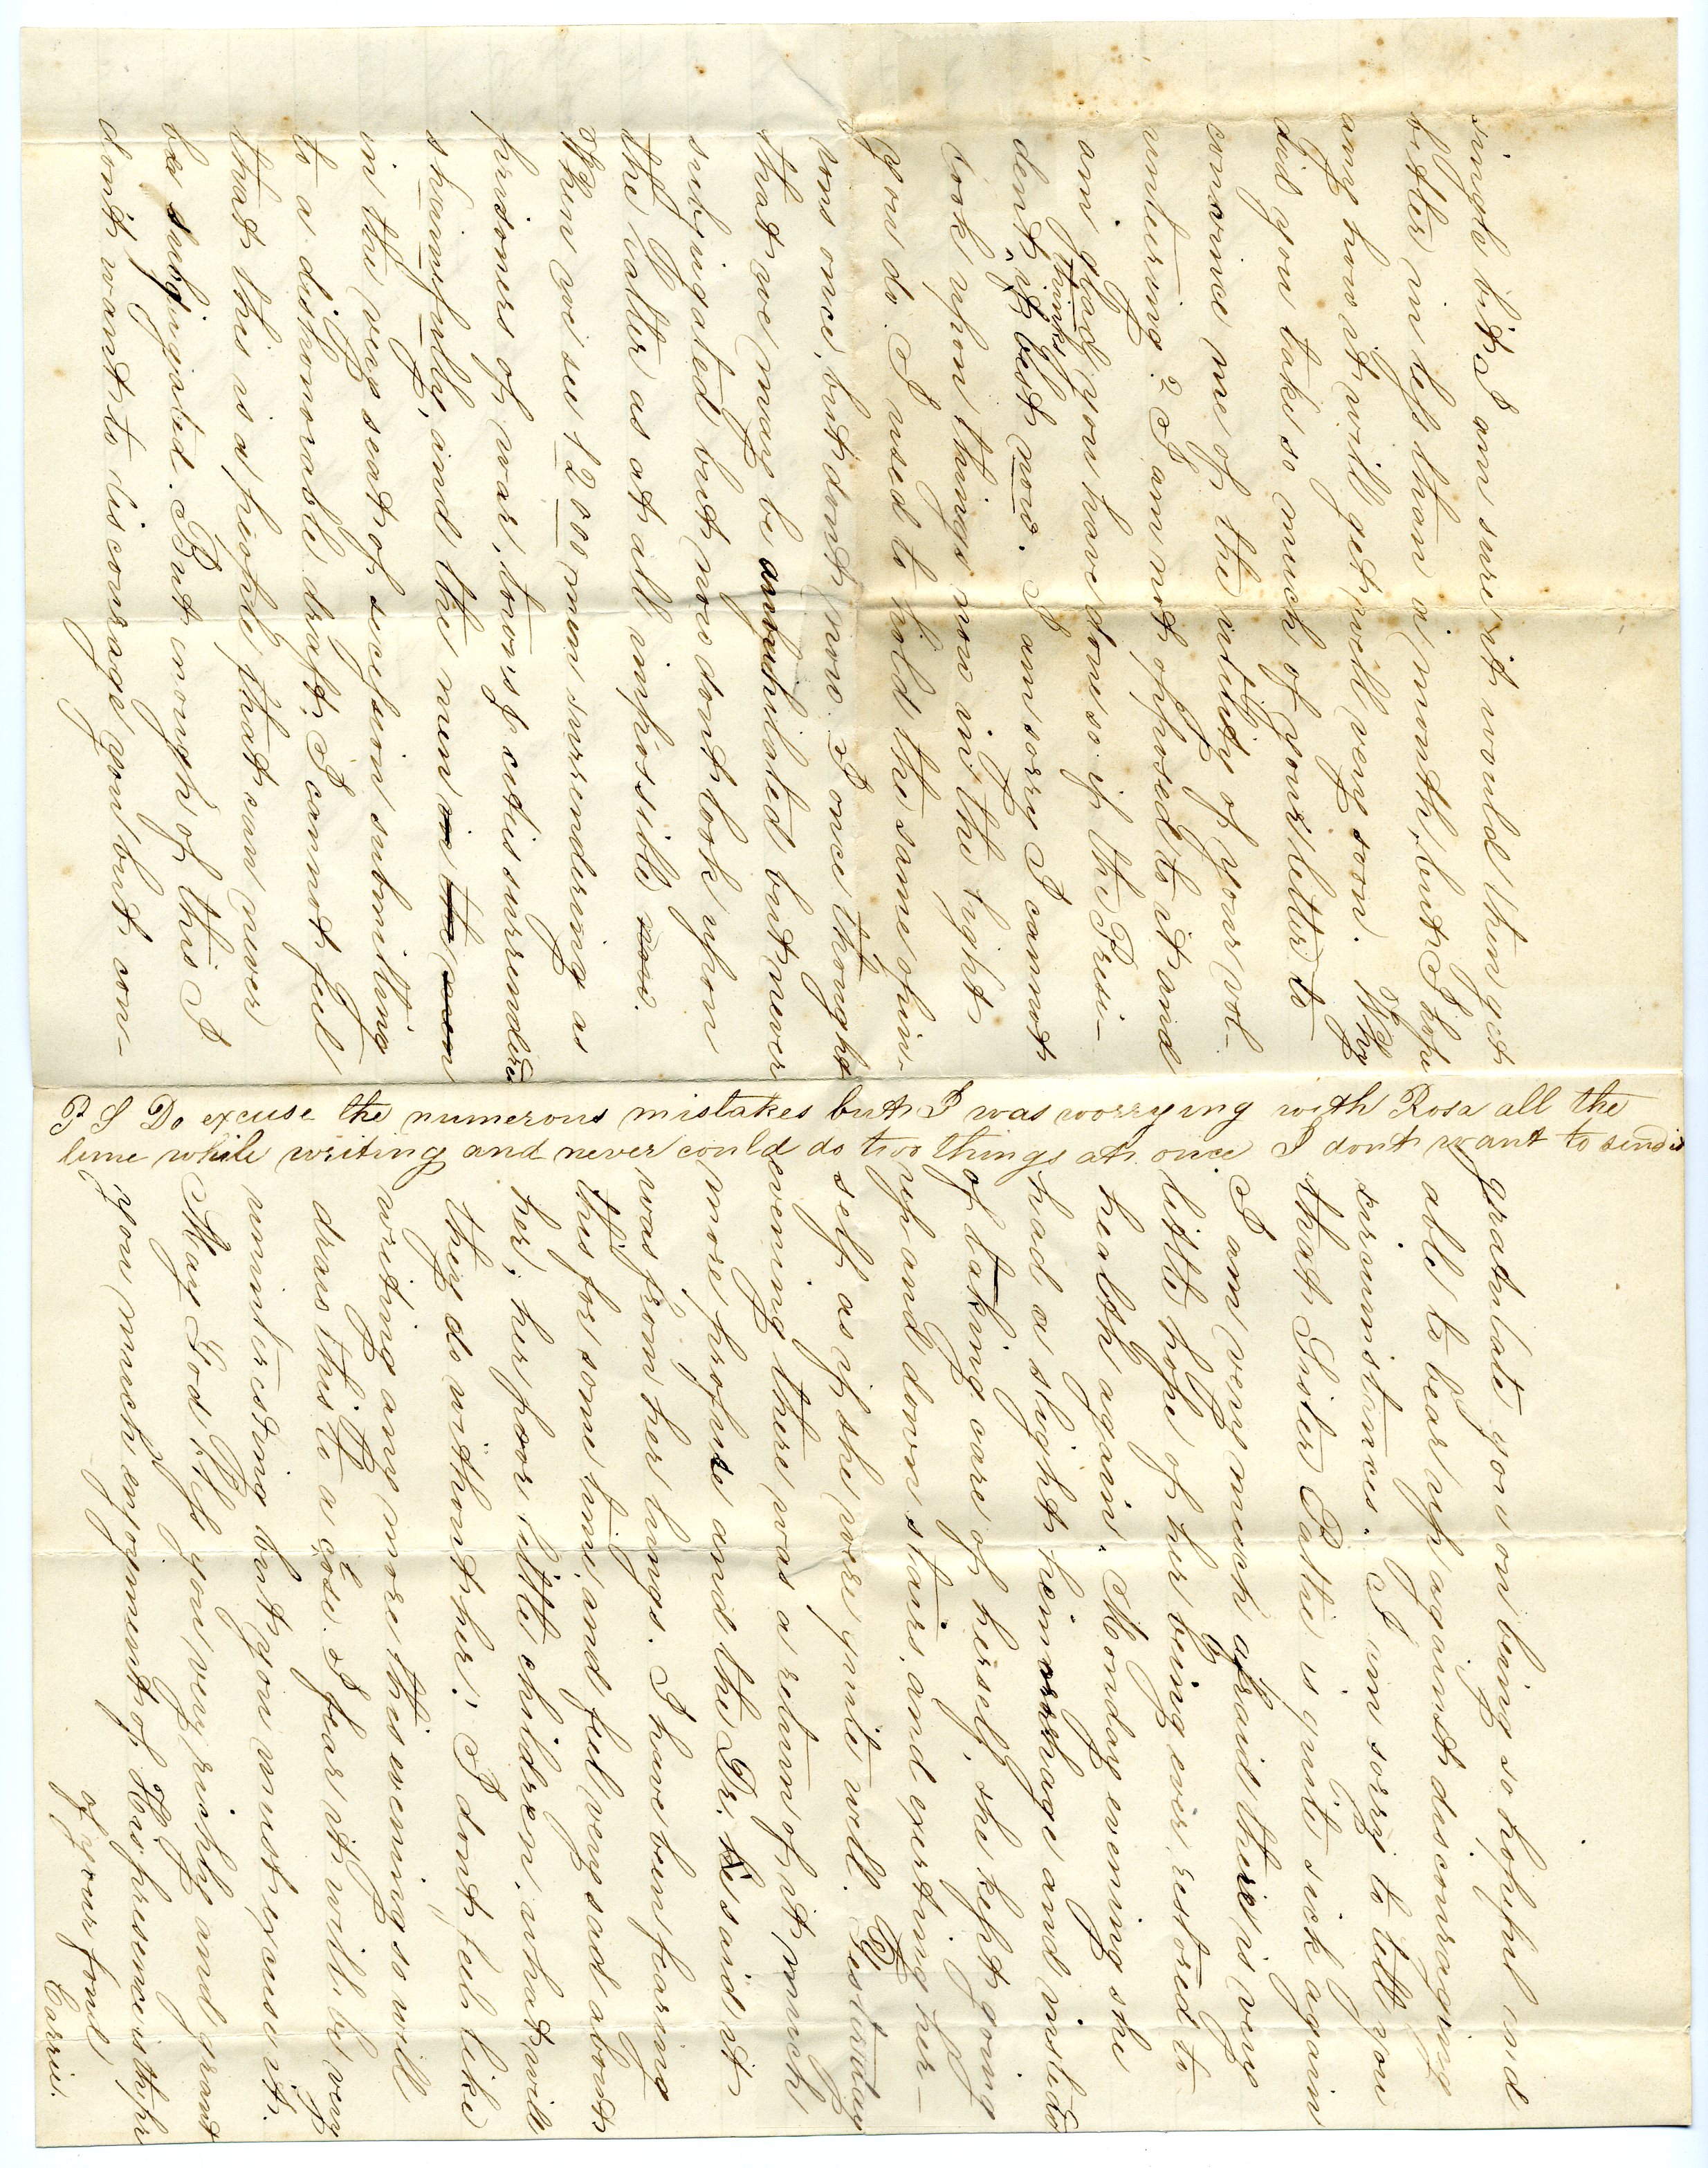 single bit, I am sure it would then get
better in less than a month, but I hope
any how it will get well very soon. Why
did you take so much of your letter to
convince me of the utility of your vol-
unteering? I am not opposed to it and
am glad you have done so if the Presi-
dent thinks it best now. I am sorry I cannot
look upon things now in the light
you do. I used to hold the same opin-
ions once, but dont now. I once thought
that we may be anihilated but never
subjugated but now dont look upon
the latter as at all impossible now.
When we see 12000 men surrendering as
prisoners of war, town's & cities surrendered
shamefully, and the men in the men
in the very seat of secession submitting
to a dishonorable draft, I cannot feel
that this is a people, that can never
be subjugated. But enough of this I
dont want to discourage you but con-
P S Do excuse the numerous mistakes but I was worrying with Rosa all the
time while writing and never could do two things at once I dont want to send it
gratulate you on being so hopeful and
able to bear up against discouraging
circumstances. I am sorry to tell you
that Sister Pattie is quite sick again
I am very much afraid there is very
little hope of her being ever restored to
health again. Monday evening she
had a slight hemorrhage and instead
of taking care of herself, she kept going
up and down stairs, and exerting her-
self as if she were quite well. Yesterday
evening there was a return of it, much
more profuse and the Dr. he said it
was from her lungs. I have been fearing
this for some time, and feel very sad about
her; her poor little children, what will
they do without her! I dont feel like
writing any more this evening so will
draw this to a close. I fear it will be very
uninteresting but you must excuse it.
May God bless you very richly and grant
you much enjoyment of His presence is the pr
of your fond
Carrie.